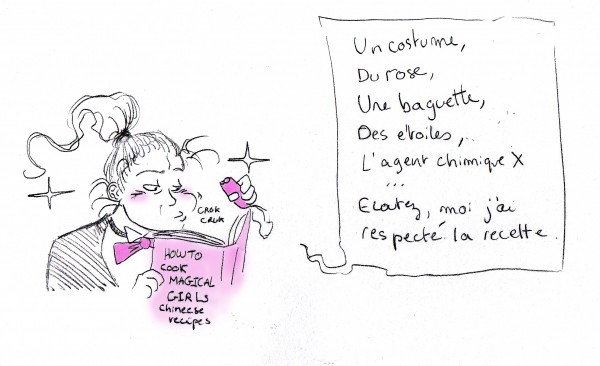 Un costume,
Du rose,
Une baguette,
Des étoiles,
L'agent chimique X
...
Ecoutez, moi j'ai
respecté la recette.
CROK
CROK
HOW TO
COOK
MAGICAL
GIRLS
chineese
recipes